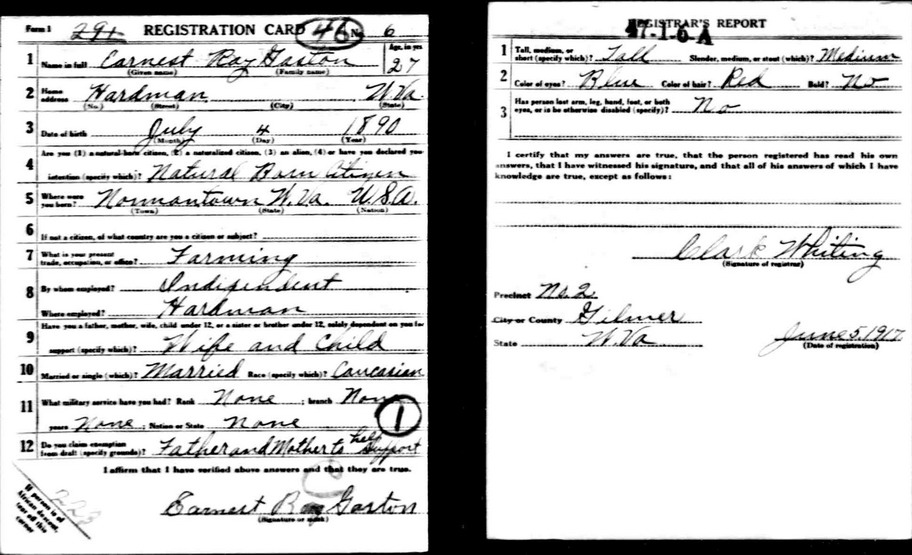 Form 1 291 REGISTRATION CARD 46 No. 6
1 Name in full Earnest Ray Gaston Age, in yrs 27
(Given name) (Family name)
2 Home address Hardman W.Va.
(No.) (Street) (City) (State)
3 Date of birth July 4 1890
(Month) (Day) (Year)
Are you (1) a natural-born citizen, (2) a naturalized citizen, (3) an alien, (4) or have you declared your
4 intention (specify which)? Natural Born Citizen
5 Where were you born? Normantown W.Va. U.S.A.
(Town) (State) (Nation)
6 If not a citizen, of what country are you a citizen or subject?
7 What is your present trade, occupation, or office? Farming
8 By whom employed? Indipendent
Where employed? Hardman
Have you a father, mother, wife, child under 12, or a sister or brother under 12, solely dependent on you for
9 support (specify which)? Wife and Child
10 Married or single (which)? Married Race (specify which)? Caucasian
11 What military service have you had? Rank None ; branch None
years None ; Nation or State None 1
12 Do you claim exemption from draft (specify grounds)? Father and Mother to help support
I affirm that I have verified above answers and that they are true.
Earnest Ray Gaston
(Signature or mark)
If person is of
African descent,
tear off this
corner
223
REGISTRAR'S REPORT
47-1-6-A
1 Tall, medium, or short (specify which)? Tall Slender, medium, or stout (which)? Medium
2 Color of eyes? Blue Color of hair? Red Bald? No
3 Has person lost arm, leg, hand, foot, or both eyes, or is he otherwise disabled (specify)? No
I certify that my answers are true, that the person registered has read his own
answers, that I have witnessed his signature, and that all of his answers of which I have
knowledge are true, except as follows:
Clark Whiting
(Signature of registrar)
Precinct No. 2
City or County Gilmer
State W.Va June 5, 1917
(Date of registration)